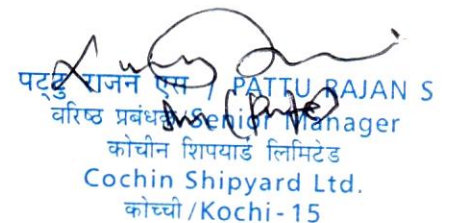 पट्टु राजन एस / PATTU RAJAN S
वरिष्ठ प्रबंधक/Senior Manager
कोचीन शिपयार्ड लिमिटेड
Cochin Shipyard Ltd.
कोच्ची /Kochi - 15